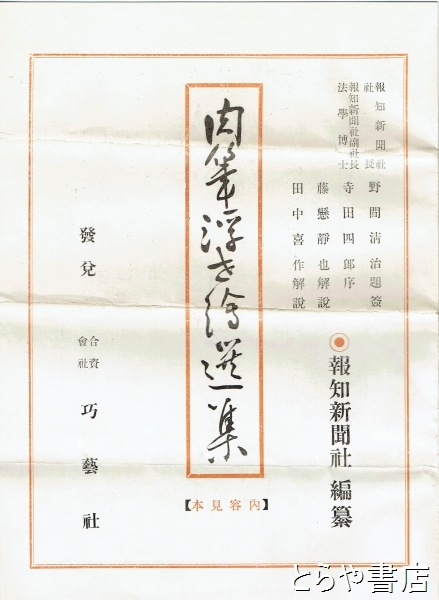 報知新聞社
社長
野間淸治題簽
報知新聞社副社長
法學博士
寺田四郎序
藤懸靜也解說
田中喜作解說
報知新聞社 編纂
肉筆浮世繪選集
【內容見本】
發兌
合資會社
巧藝社
とらや書店